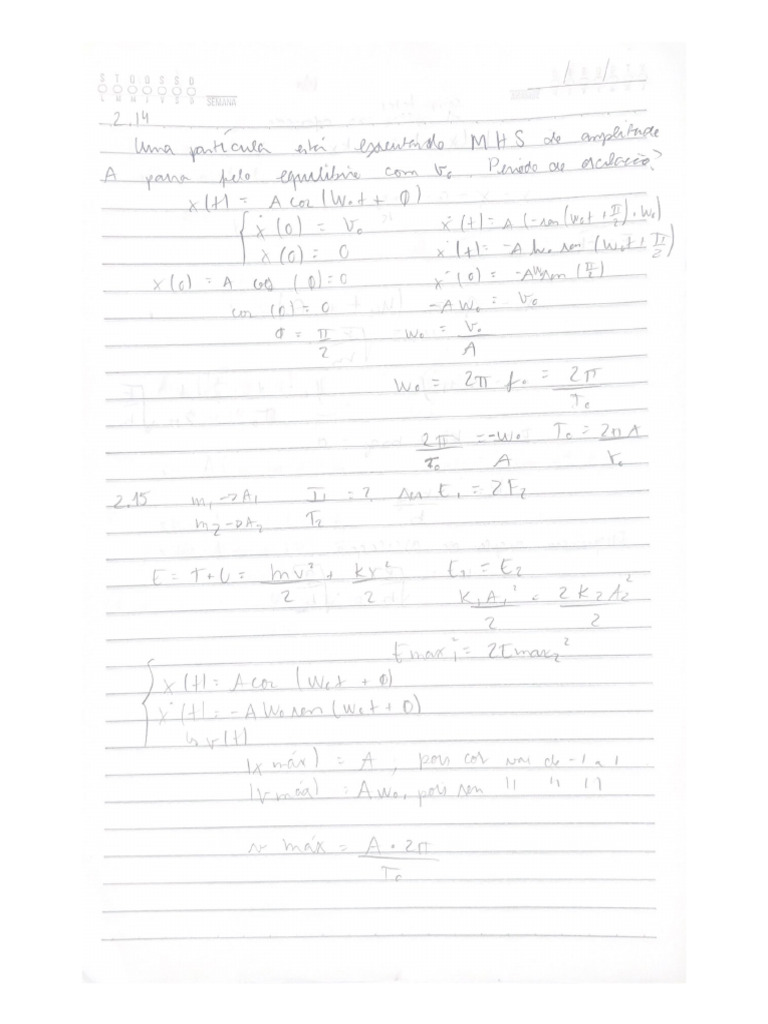 S T Q Q S S D
L M M J V S D
SEMANA
/ /
2.14
Uma partícula está executando MHS de amplitude
A passa pelo equilíbrio com v₀. Período de oscilação?
x(t) = A cos(w₀t + φ)
ẋ(0) = v₀ ẋ(t) = A (-sen(w₀t + π/2) · w₀)
x(0) = 0 ẋ(t) = -A w₀ sen (w₀t + π/2)
x(0) = A cos (φ) = 0 ẋ(0) = -A w₀ sen (π/2)
cos (φ) = 0 -A w₀ = v₀
φ = π/2 w₀ = v₀/A
w₀ = 2π f₀ = 2π/T₀
2π/T₀ = T₀ = 2πA/v₀
2.15 m₁ → A₁ T₁/T₂ = ? E₁ = 2E₂
m₂ → A₂
E = T + U = mv²/2 + kx²/2 E₁ = E₂
K₁A₁²/2 = 2K₂A₂²/2
Emax₁² = 2Emax₂²
x(t) = A cos (w₀t + φ)
ẋ(t) = -A w₀ sen (w₀t + φ)
↳ v(t)
|x máx| = A, pois cos vai de -1 a 1
|v máx| = A w₀, pois sen " " "
v máx = A · 2π/T₀